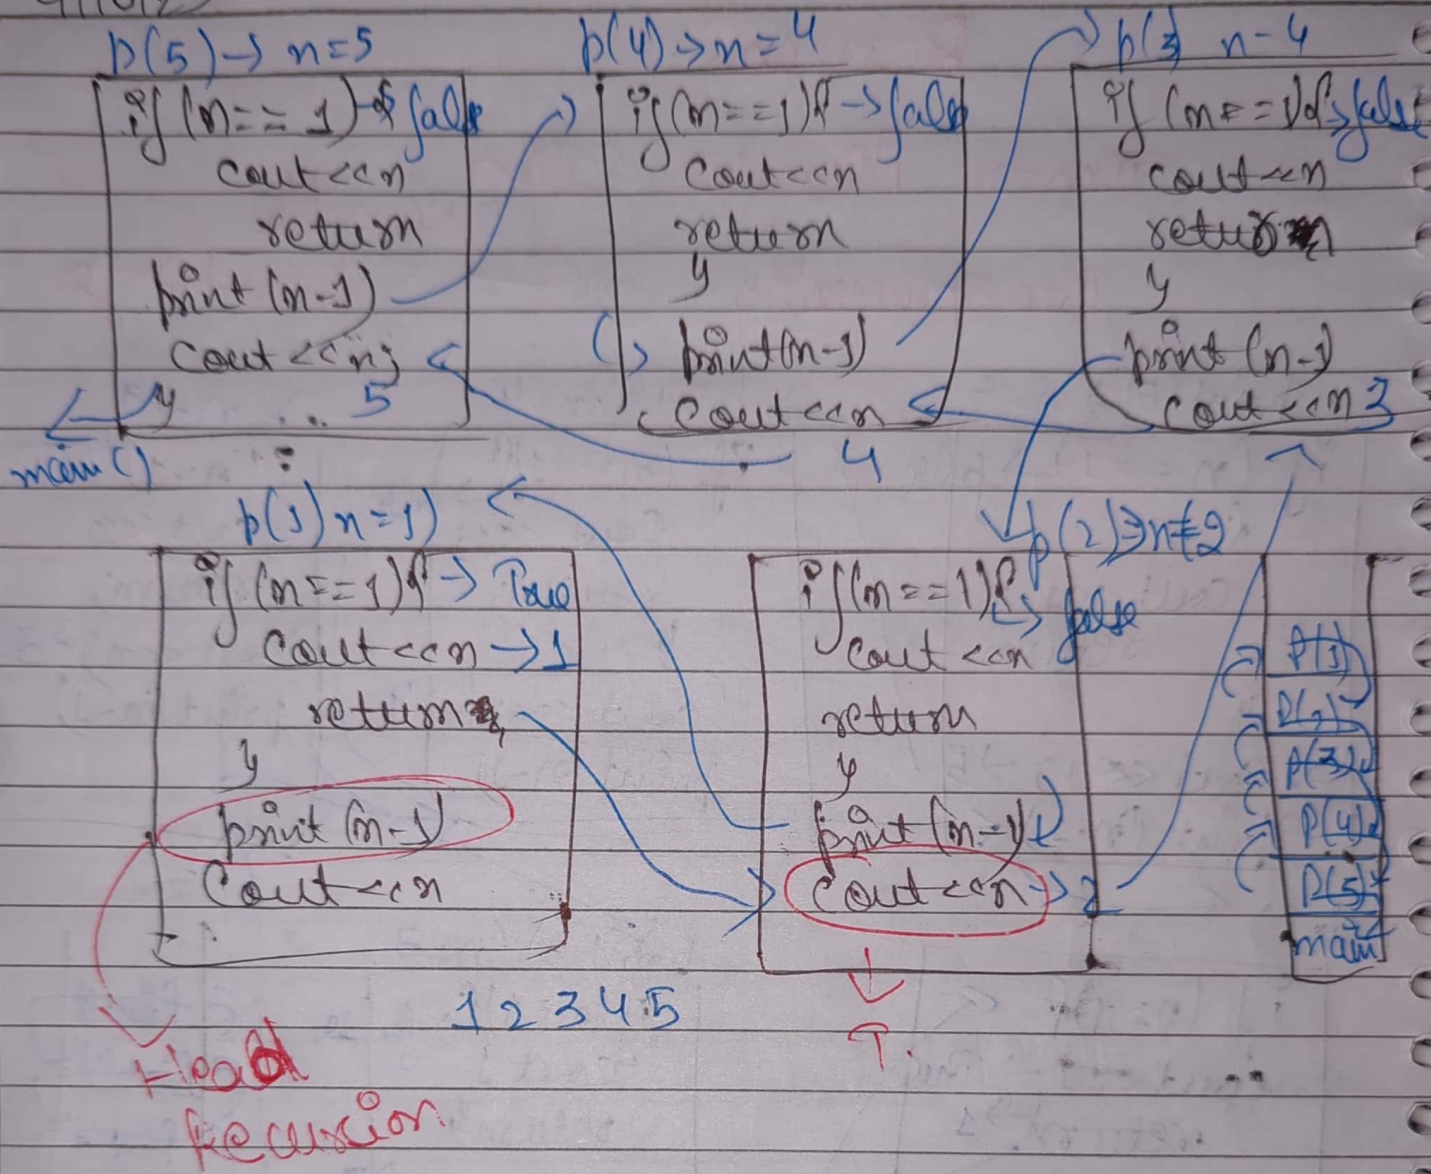 p(5) → n=5
if (n == 1) { → false
cout << n
return
print (n-1)
cout << n;
}
5
main ()
p(4) → n = 4
if (n == 1) { → false
cout << n
return
}
print (n-1)
cout << n
4
p(3) n - 4
if (n == 1) { → false
cout << n
return
}
print (n-1)
cout << n 3
p(1) n = 1)
if (n == 1) { → True
cout << n → 1
return
}
print (n-1)
cout << n
p(2) → n = 2
if (n == 1) {
→ false
cout << n
return
}
print (n-1)
cout << n → 2
P(1)
P(2)
P(3)
P(4)
P(5)
main
1 2 3 4 5
T.
Head
Recursion